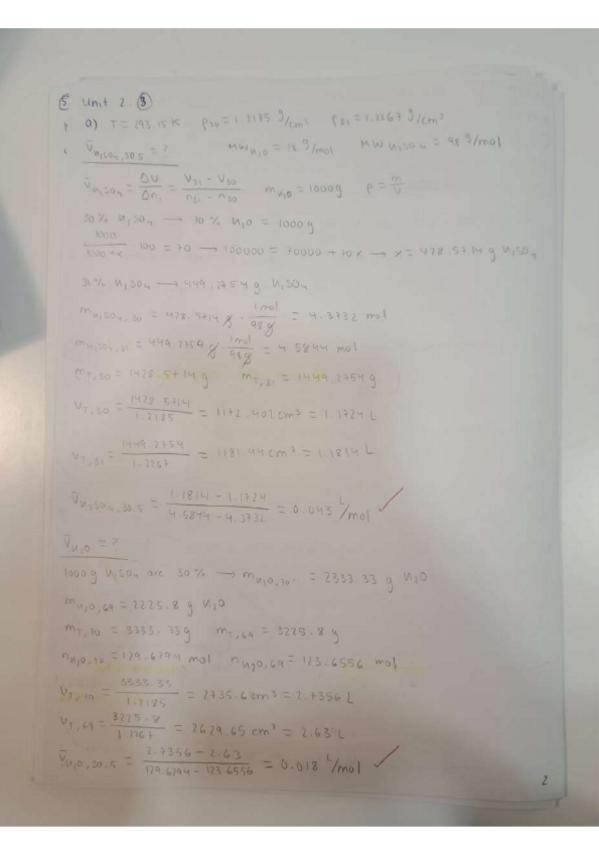 ⑤ Unit 2. ⑧
a) T = 293.15 K ρ30 = 1.2185 g/cm³ ρ31 = 1.2267 g/cm³
V̄H2SO4,30.5 = ? MW H2O = 18 g/mol MW H2SO4 = 98 g/mol
V̄H2SO4 = ΔV/Δni = (V31 - V30)/(n31 - n30) mH2O = 1000g ρ = m/V
30% H2SO4 → 70% H2O = 1000g
1000/(1000+x) · 100 = 70 → 100000 = 70000 + 70x → x = 428.5714 g H2SO4
31% H2SO4 → 449.2754 g H2SO4
mH2SO4,30 = 428.5714 g · 1mol/98g = 4.3732 mol
mH2SO4,31 = 449.2754 g · 1mol/98g = 4.5844 mol
mT,30 = 1428.5714 g mT,31 = 1449.2754 g
VT,30 = 1428.5714/1.2185 = 1172.402 cm³ = 1.1724 L
VT,31 = 1449.2754/1.2267 = 1181.44 cm³ = 1.1814 L
V̄H2SO4,30.5 = (1.1814 - 1.1724)/(4.5844 - 4.3732) = 0.043 L/mol ✓
V̄H2O = ?
1000g H2SO4 are 30% → mH2O,70 = 2333.33 g H2O
mH2O,69 = 2225.8 g H2O
mT,70 = 3333.33g mT,69 = 3225.8 g
nH2O,70 = 129.6294 mol nH2O,69 = 123.6556 mol
VT,70 = 3333.33/1.2185 = 2735.6 cm³ = 2.7356 L
VT,69 = 3225.8/1.2267 = 2629.65 cm³ = 2.63 L
V̄H2O,30.5 = (2.7356 - 2.63)/(129.6294 - 123.6556) = 0.018 L/mol ✓
2